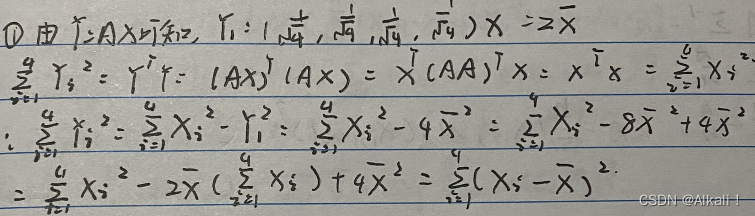 ① 由 Y=AX 可知, Y₁ = ( 1/√4, 1/√4, 1/√4, 1/√4 ) X = 2X̄
∑⁴ᵢ₌₁ Yᵢ² = YᵀY = (AX)ᵀ(AX) = Xᵀ(AA)ᵀX = XᵀX = ∑⁴ᵢ₌₁ Xᵢ²
∴ ∑⁴ Yᵢ² = ∑⁴ᵢ₌₁ Xᵢ² - Y₁² = ∑⁴ᵢ₌₁ Xᵢ² - 4X̄² = ∑⁴ᵢ₌₁ Xᵢ² - 8X̄² + 4X̄²
= ∑⁴ᵢ₌₁ Xᵢ² - 2X̄ (∑⁴ᵢ₌₁ Xᵢ) + 4X̄² = ∑⁴ᵢ₌₁ (Xᵢ - X̄)².
CSDN @Alkali！